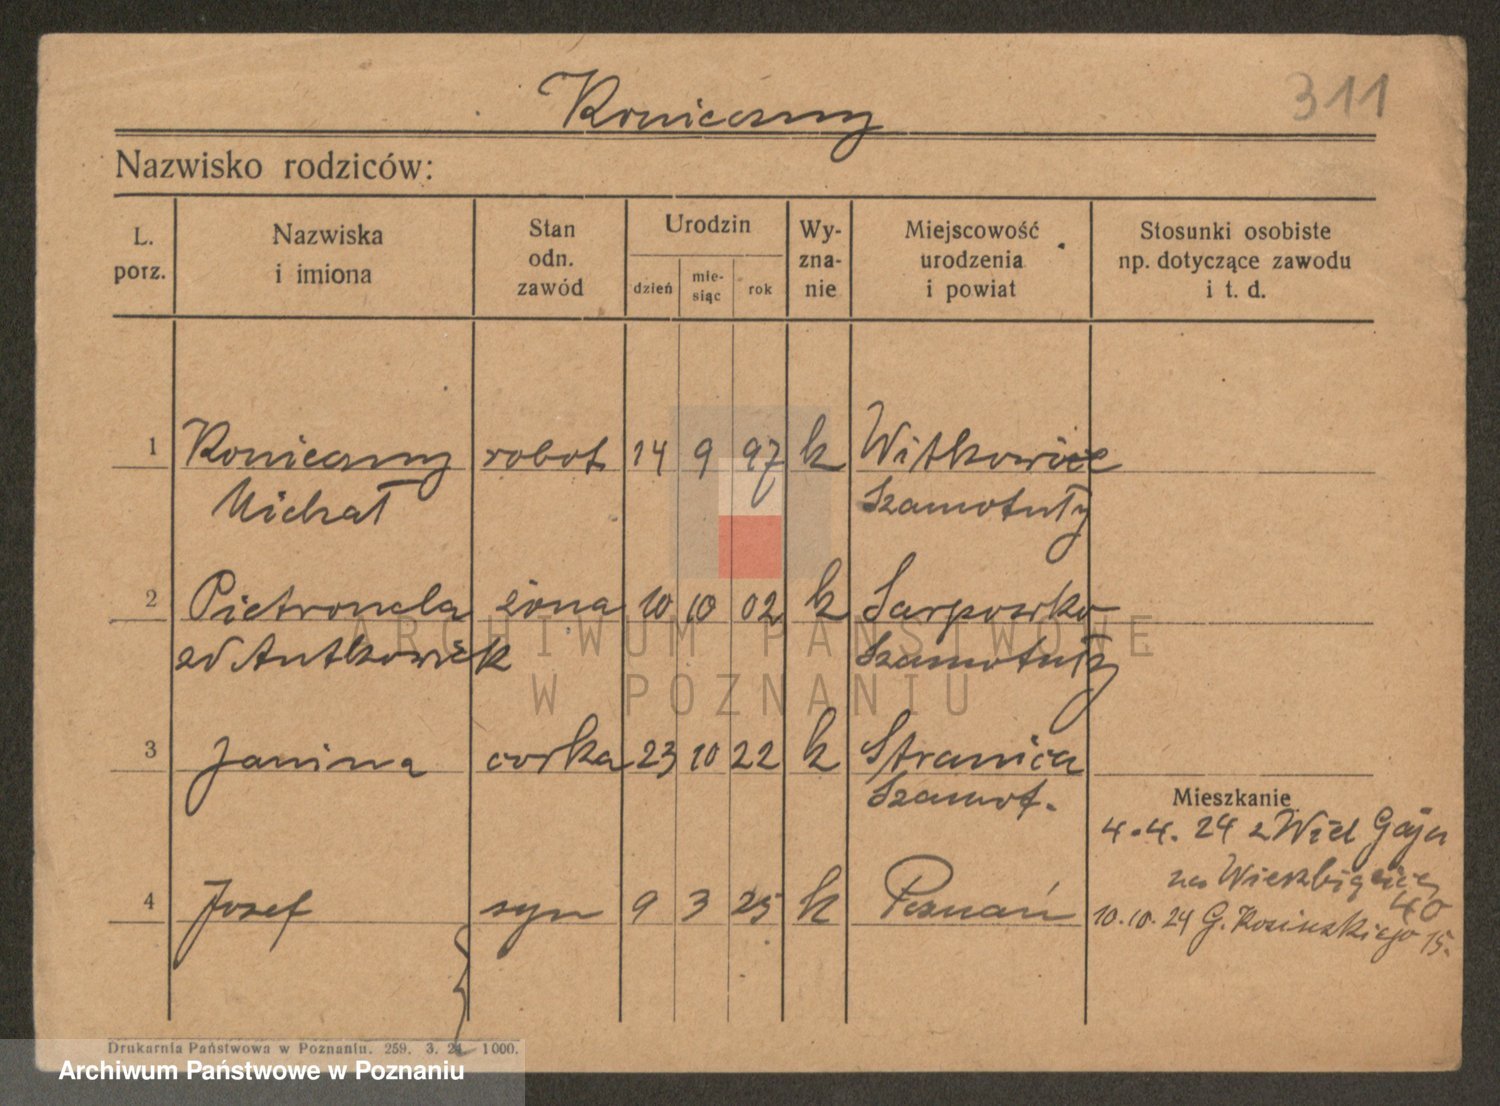 311
Koniczny
Nazwisko rodziców:
L. porz.
Nazwiska i imiona
Stan odn. zawód
Urodzin
dzień
mie-
siąc
rok
Wy-
zna-
nie
Miejscowość urodzenia i powiat
Stosunki osobiste np. dotyczące zawodu i t. d.
1 Koniczny robot. 14 9 97 k Witkowice
Michał Szamotuły
2 Pietronela żona 10 10 02 k
zd Antkowiek Szamotuły
3 Janina corka 23 10 22 k
Szamot.
Mieszkanie
4.4. 24 z Wiel Gaju
na 40
4 Josef syn 9 3 25 k Poznań
10.10.24 G. Kosinskiego 15.
Drukarnia Państwowa w Poznaniu. 259. 3. 24 1000.
ARCHIWUM PAŃSTWOWE
W POZNANIU
Archiwum Państwowe w Poznaniu